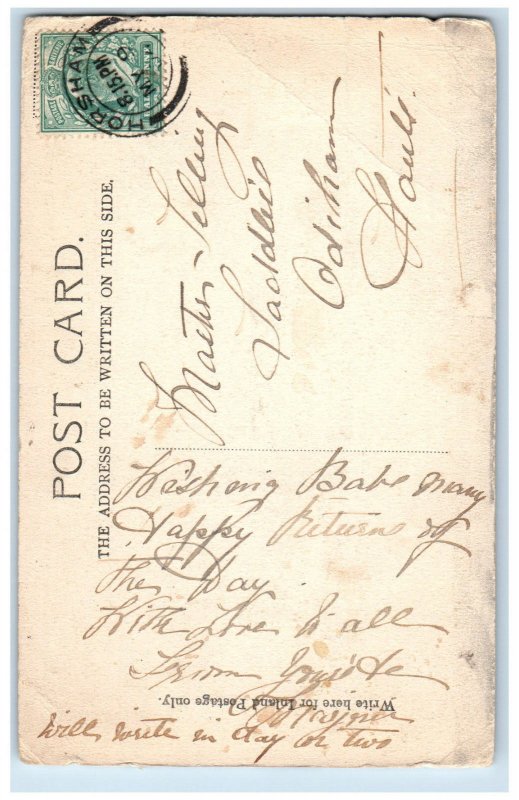 POST CARD.
THE ADDRESS TO BE WRITTEN ON THIS SIDE.
HORSHAM
8.15 PM
MY 9
Master
Odiham
Hants
Wishing Babe many
Happy Returns of
the Day.
With Love to all
From
Write here for Inland Postage only.
will write in day or two